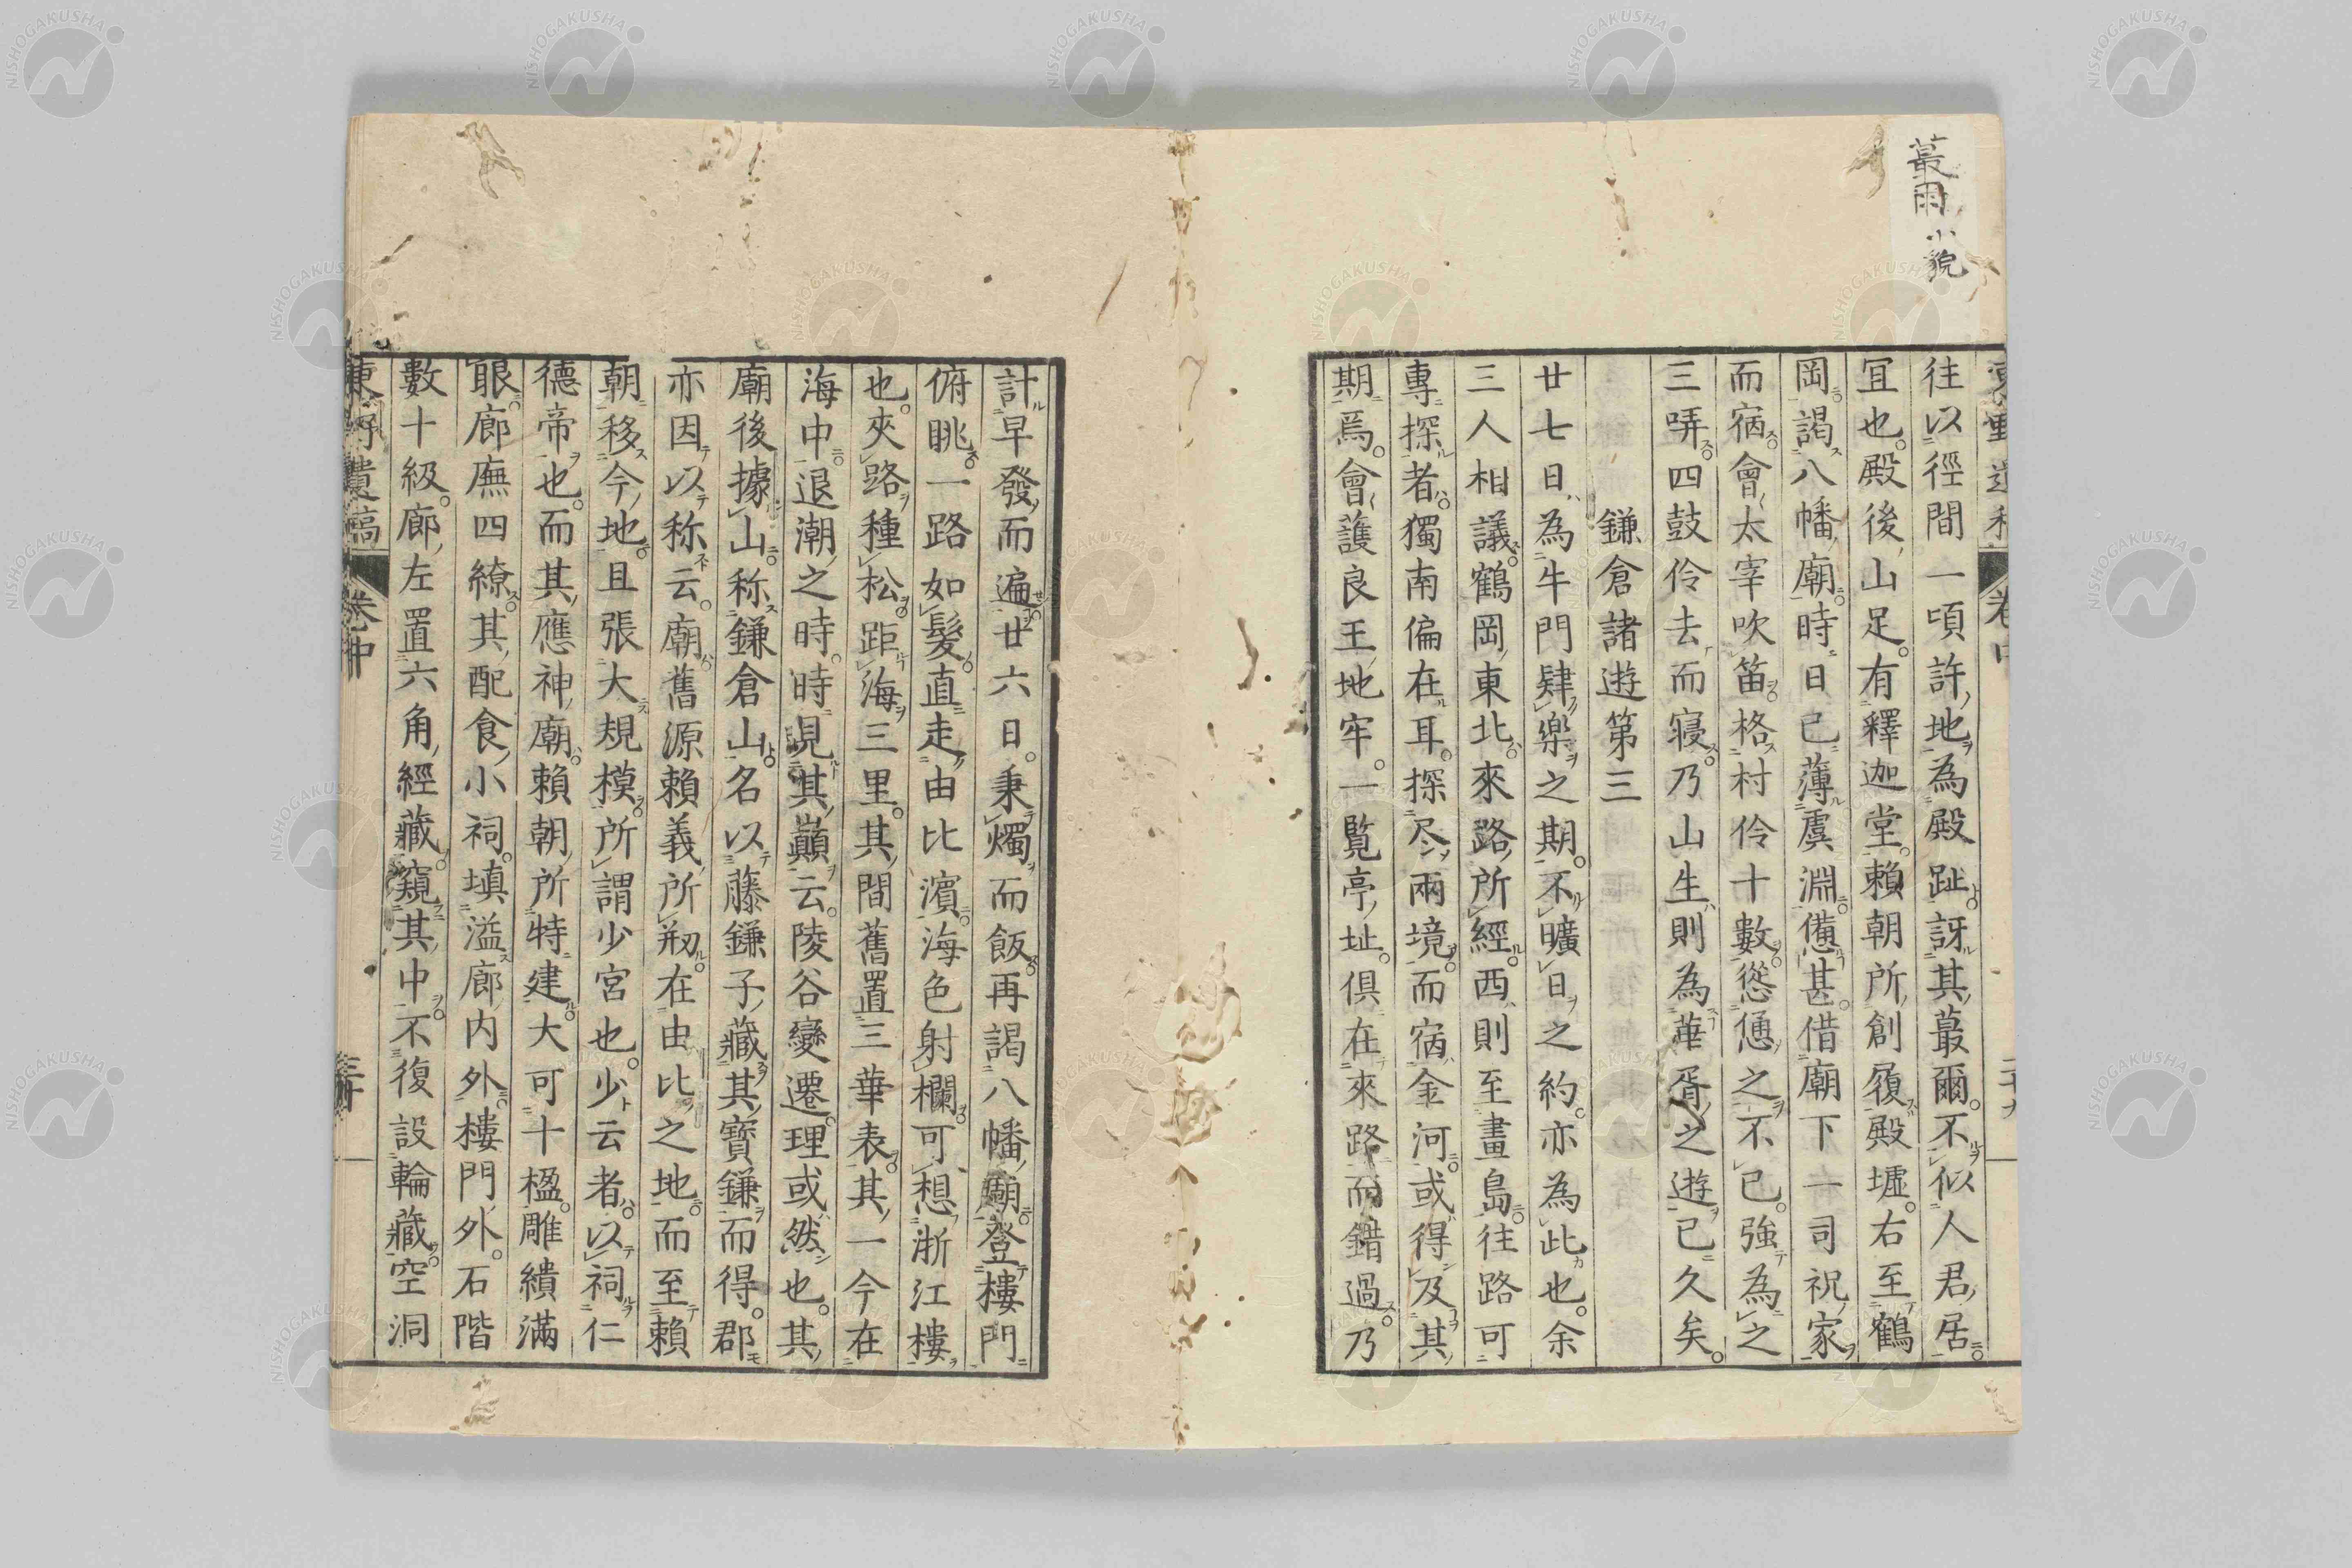 蕞爾 小貌
往以徑間一頃許地為殿趾訝其蕞爾不似人君居
冝也殿後山足有釋迦堂賴朝所創履殿墟右至鶴
岡謁八幡廟時日已薄虞淵憊甚借廟下一司祝家
而宿會太宰吹笛格村伶十數慫慂之不已強為之
三哢四鼓伶去而寝乃山生則為華胥之遊已久矣
鎌倉諸遊第三
廿七日為牛門肄樂之期不曠日之約亦為此也余
三人相議鶴岡東北來路所經西則至畫島往路可
專探者獨南偏在耳探尽兩境而宿金河或得及其
期焉會護良王地牢一覧亭址俱在來路而錯過乃
計早發而遍廿六日秉燭而飯再謁八幡廟登樓門
俯眺一路如髮直走由比濵海色射欄可想浙江樓
也夾路種松距海三里其間舊置三華表其一今在
海中退潮之時時見其巔云陵谷變遷理或然也其
廟後據山称鎌倉山名以藤鎌子藏其寶鎌而得郡
亦因以称云廟舊源賴義所剏在由比之地而至賴
朝移今地且張大規模所謂少宮也少云者以祠仁
德帝也而其應神廟賴朝所特建大可十楹雕繢滿
眼廊廡四繚其配食小祠填溢廊内外樓門外石階
數十級廊左置六角經藏窺其中不復設輪藏空洞
東野遺稿 卷中